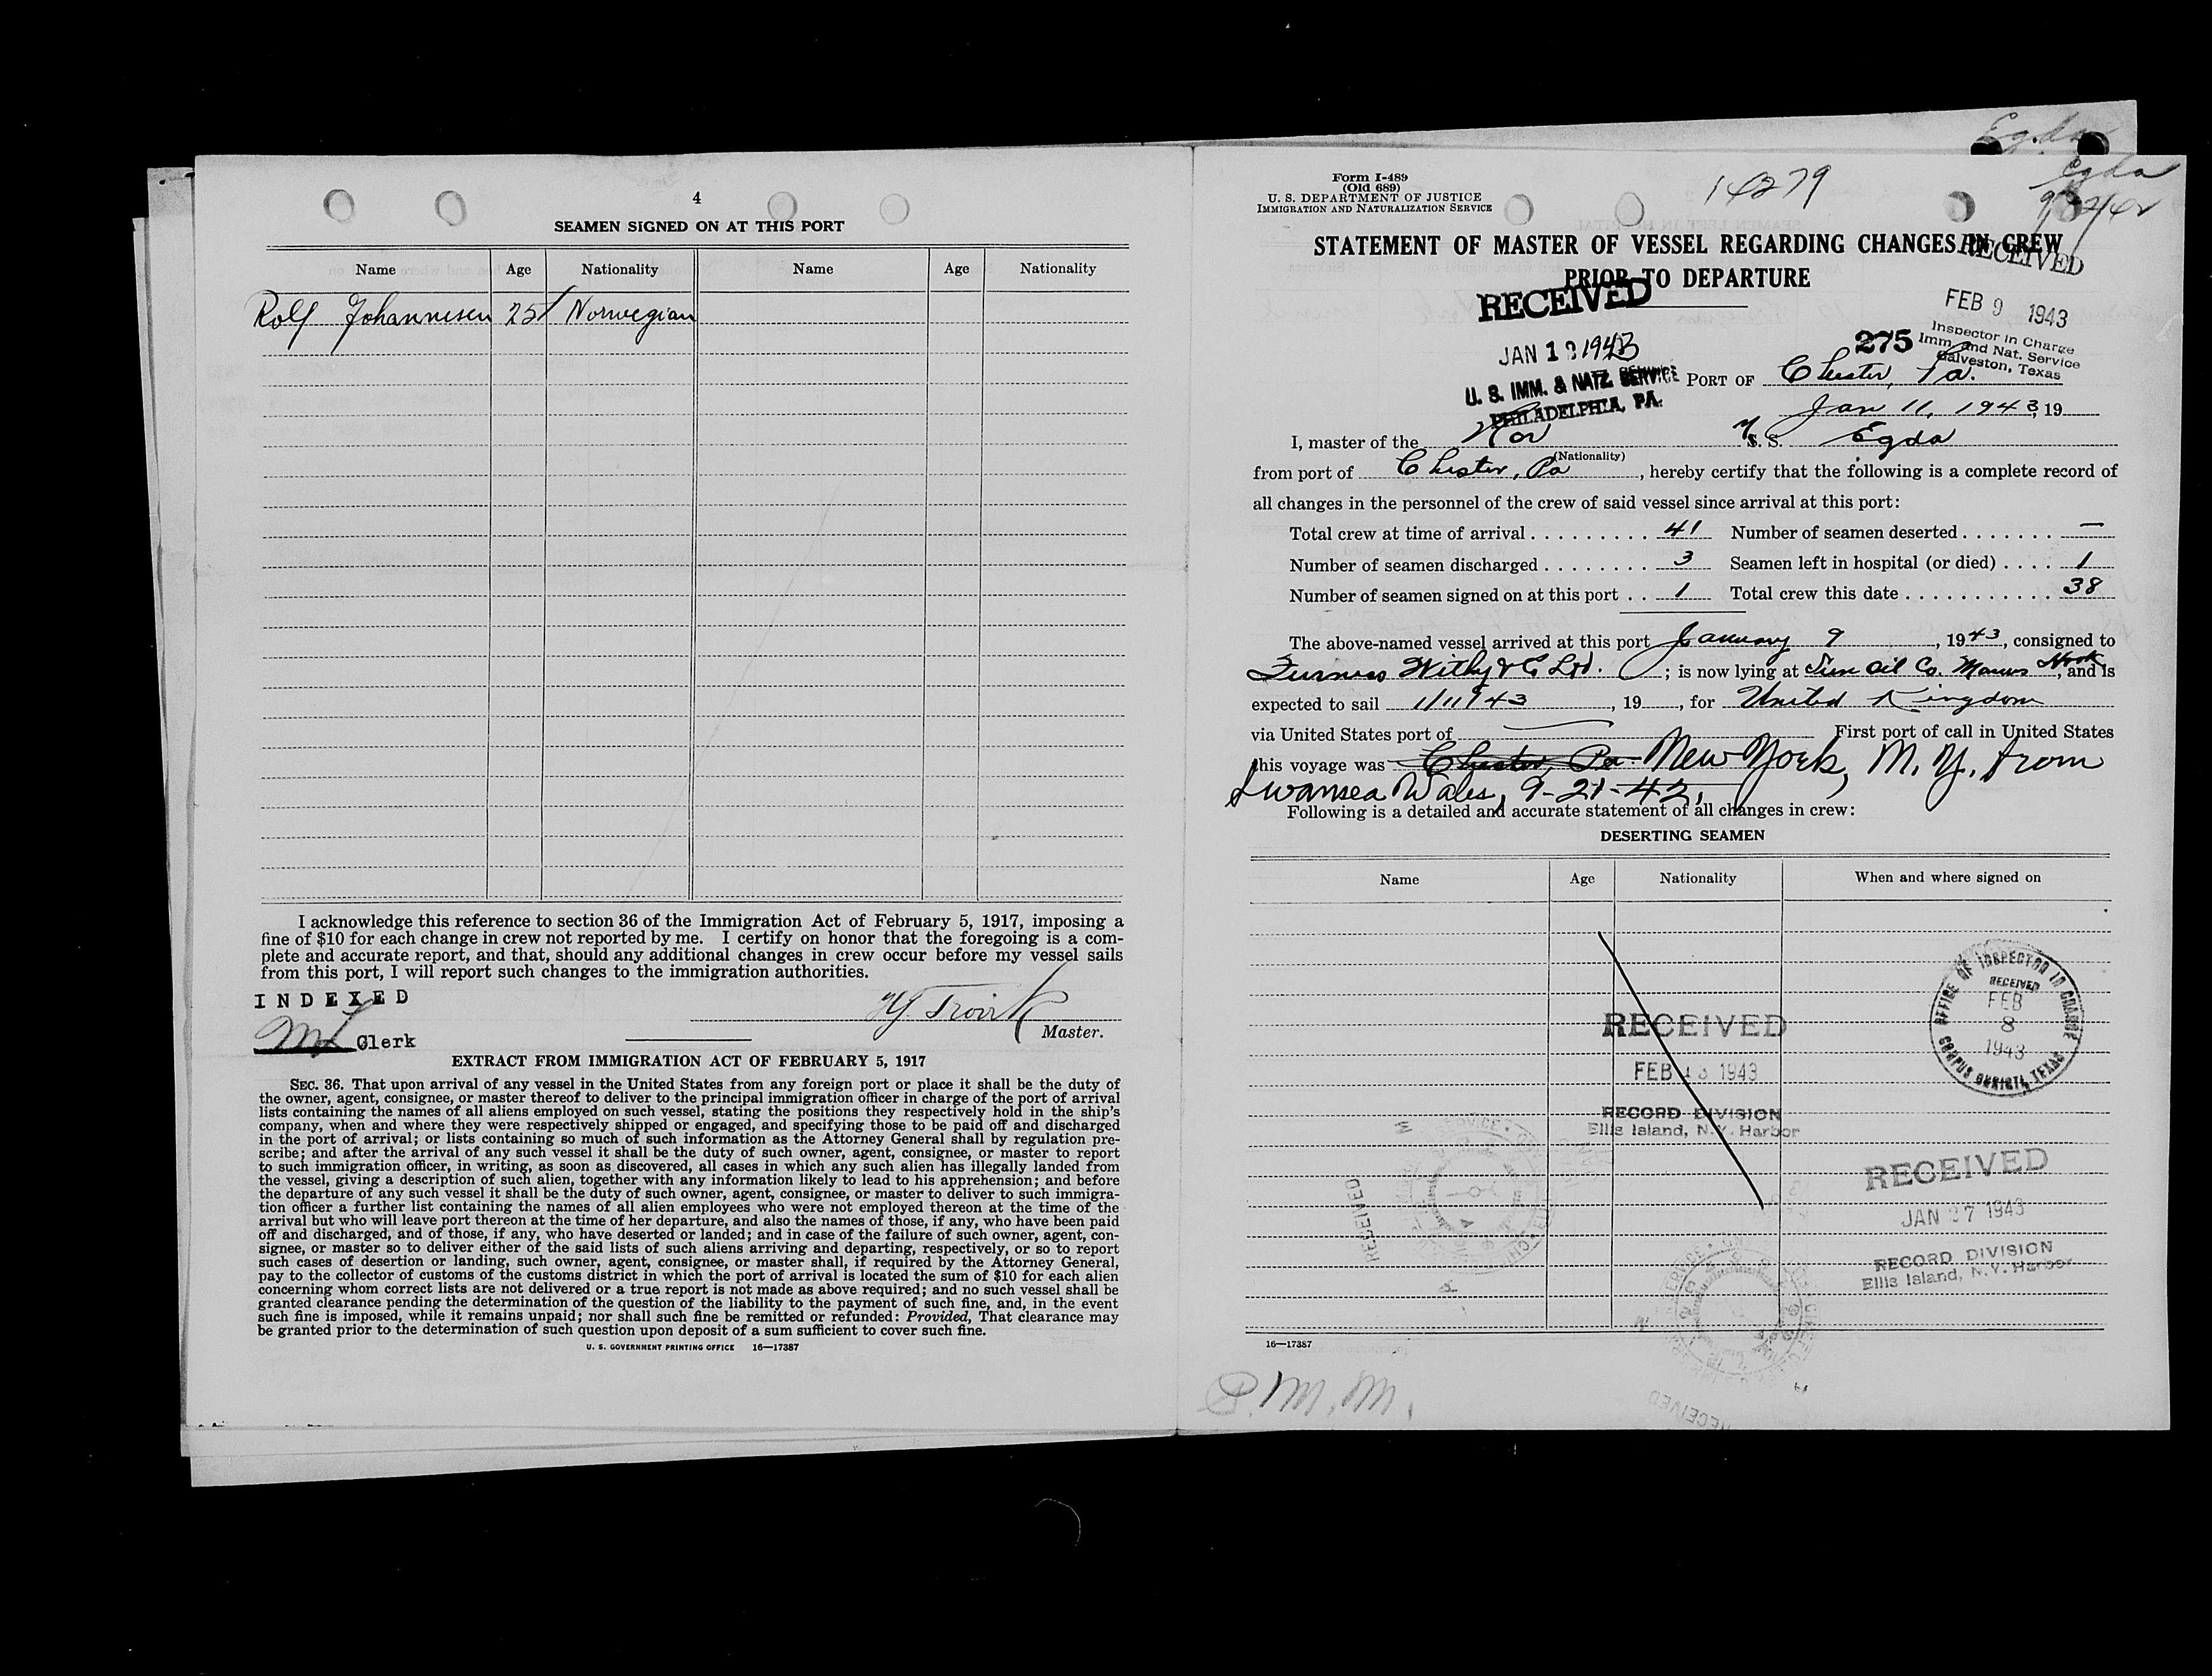 4
SEAMEN SIGNED ON AT THIS PORT
Name Age Nationality Name Age Nationality
Rolf Johannesen 25 Norwegian
I acknowledge this reference to section 36 of the Immigration Act of February 5, 1917, imposing a
fine of $10 for each change in crew not reported by me. I certify on honor that the foregoing is a com-
plete and accurate report, and that, should any additional changes in crew occur before my vessel sails
from this port, I will report such changes to the immigration authorities.
INDEXED
Clerk
Master.
EXTRACT FROM IMMIGRATION ACT OF FEBRUARY 5, 1917
SEC. 36. That upon arrival of any vessel in the United States from any foreign port or place it shall be the duty of
the owner, agent, consignee, or master thereof to deliver to the principal immigration officer in charge of the port of arrival
lists containing the names of all aliens employed on such vessel, stating the positions they respectively hold in the ship's
company, when and where they were respectively shipped or engaged, and specifying those to be paid off and discharged
in the port of arrival; or lists containing so much of such information as the Attorney General shall by regulation pre-
scribe; and after the arrival of any such vessel it shall be the duty of such owner, agent, consignee, or master to report
to such immigration officer, in writing, as soon as discovered, all cases in which any such alien has illegally landed from
the vessel, giving a description of such alien, together with any information likely to lead to his apprehension; and before
the departure of any such vessel it shall be the duty of such owner, agent, consignee, or master to deliver to such immigra-
tion officer a further list containing the names of all alien employees who were not employed thereon at the time of the
arrival but who will leave port thereon at the time of her departure, and also the names of those, if any, who have been paid
off and discharged, and of those, if any, who have deserted or landed; and in case of the failure of such owner, agent, con-
signee, or master so to deliver either of the said lists of such aliens arriving and departing, respectively, or so to report
such cases of desertion or landing, such owner, agent, consignee, or master shall, if required by the Attorney General,
pay to the collector of customs of the customs district in which the port of arrival is located the sum of $10 for each alien
concerning whom correct lists are not delivered or a true report is not made as above required; and no such vessel shall be
granted clearance pending the determination of the question of the liability to the payment of such fine, and, in the event
such fine is imposed, while it remains unpaid; nor shall such fine be remitted or refunded: Provided, That clearance may
be granted prior to the determination of such question upon deposit of a sum sufficient to cover such fine.
U. S. GOVERNMENT PRINTING OFFICE 16—17387
Egda
Egda
Form I-489
(Old 689)
U. S. DEPARTMENT OF JUSTICE
IMMIGRATION AND NATURALIZATION SERVICE
14279
STATEMENT OF MASTER OF VESSEL REGARDING CHANGES IN CREW
PRIOR TO DEPARTURE
RECEIVED
FEB 9 1943
Inspector in Charge
Imm. and Nat. Service
Galveston, Texas
RECEIVED
JAN 1 1943
U. S. IMM. & NATZ. SERVICE
PHILADELPHIA, PA.
275
PORT OF Chester, Pa.
Jan 11, 1943, 19
I, master of the Nor M S. S. Egda
(Nationality)
from port of Chester, Pa, hereby certify that the following is a complete record of
all changes in the personnel of the crew of said vessel since arrival at this port:
Total crew at time of arrival . . . . . . . . . 41 Number of seamen deserted . . . . . . . —
Number of seamen discharged . . . . . . . . 3 Seamen left in hospital (or died) . . . . 1
Number of seamen signed on at this port . . 1 Total crew this date . . . . . . . . . . . 38
The above-named vessel arrived at this port January 9, 1943, consigned to
Furness Withy & C Ltd. ; is now lying at Sun Oil Co. Marcus Hook, and is
expected to sail 1/11/43, 19 , for United Kingdom
via United States port of — First port of call in United States
this voyage was Chester, Pa New York, N. Y. from
Swansea Wales, 9-21-42.
Following is a detailed and accurate statement of all changes in crew:
DESERTING SEAMEN
Name Age Nationality When and where signed on
OFFICE OF INSPECTOR IN CHARGE
RECEIVED
FEB
8
1943
CORPUS CHRISTI, TEXAS
RECEIVED
FEB 13 1943
RECORD DIVISION
Ellis Island, N.Y. Harbor
RECEIVED
JAN 27 1943
RECORD DIVISION
Ellis Island, N.Y. Harbor
RECEIVED
RECEIVED
16—17387
P.M.M.